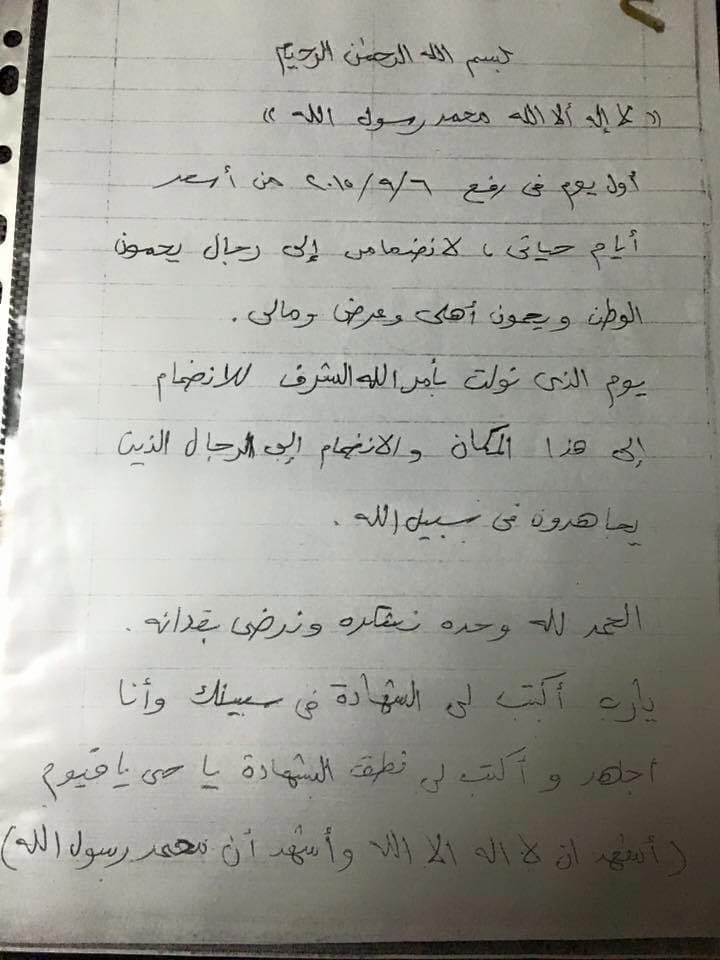 بسم الله الرحمن الرحيم
« لا إله ألا الله محمد رسول الله »
أول يوم فى رفع ٢٠١٥/٩/٦ من أسعد
أيام حياتى ، لانضمامى إلى رجال يحمون
الوطن ويحمون أهلى وعرضى ومالى .
يوم الذى نولت بأمر الله الشرف للانضمام
إلى هذا المكان والانضمام إلى الرجال الذين
يجاهدون فى سبيل الله .
الحمد لله وحده نشكره ونرضى بقدائه .
يارب أكتب لى الشهادة فى سبيلك وأنا
أجاهد و أكتب لى نطق الشهادة يا حى يا قيوم
(أشهد ان لا اله الا الله وأشهد أن محمد رسول الله)